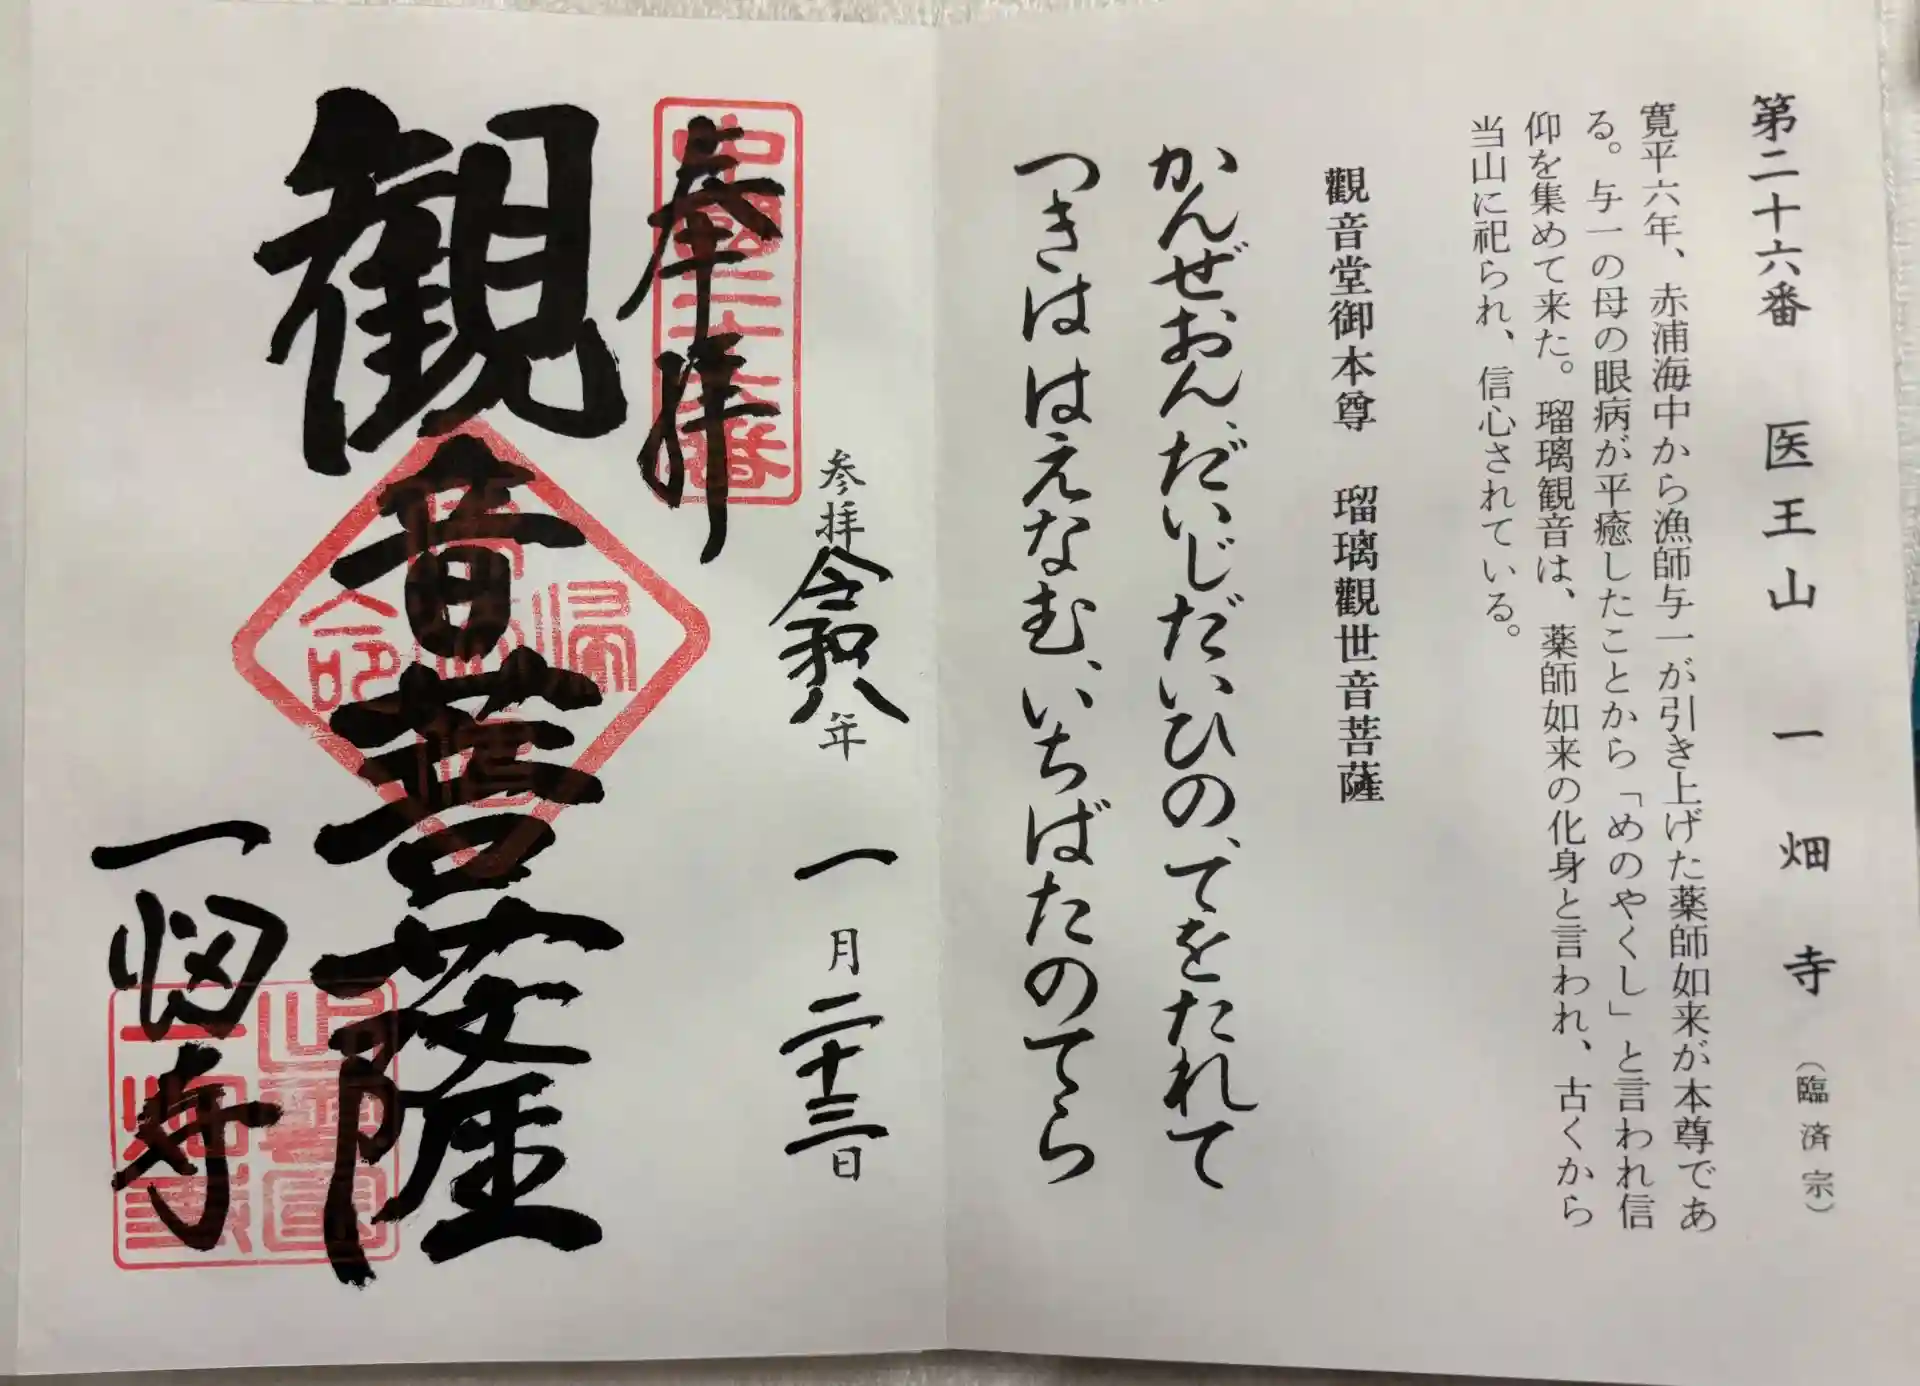 第二十六番　医王山　一畑寺（臨済宗）
寛平六年、赤浦海中から漁師与一が引き上げた薬師如来が本尊であ
る。与一の母の眼病が平癒したことから「めのやくし」と言われ信
仰を集めて来た。瑠璃観音は、薬師如来の化身と言われ、古くから
当山に祀られ、信心されている。
觀音堂御本尊　瑠璃觀世音菩薩
かんぜおん、だいじだいひの、てをたれて
つきははえなむ、いちばたのてら
参拝令和八年　一月二十三日
奉拝
観音菩薩
一畑寺